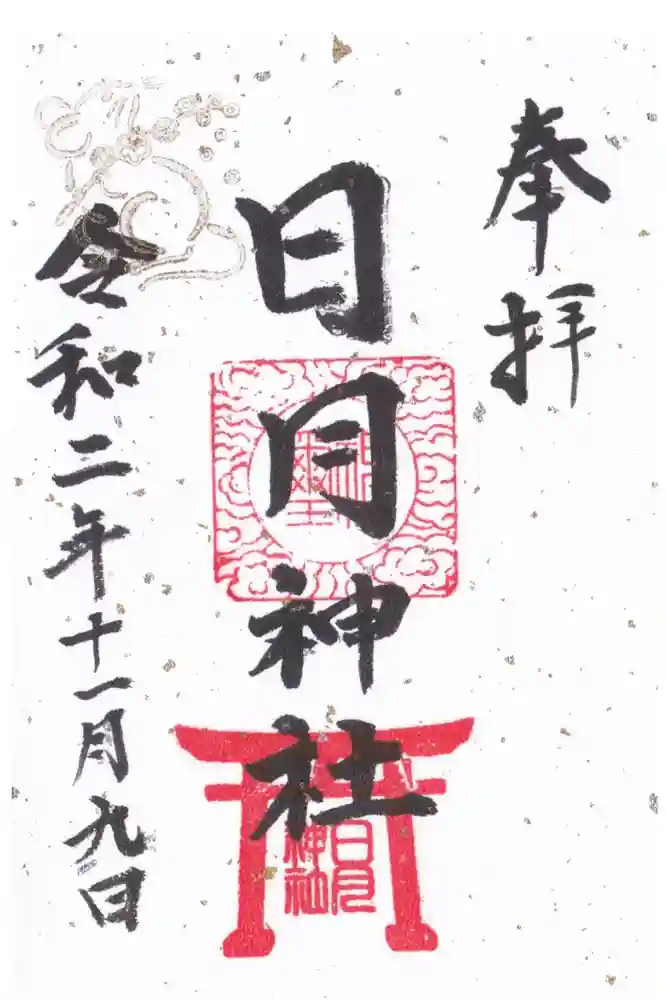 奉拝
日月神社
日月
神社
令和二年十一月九日